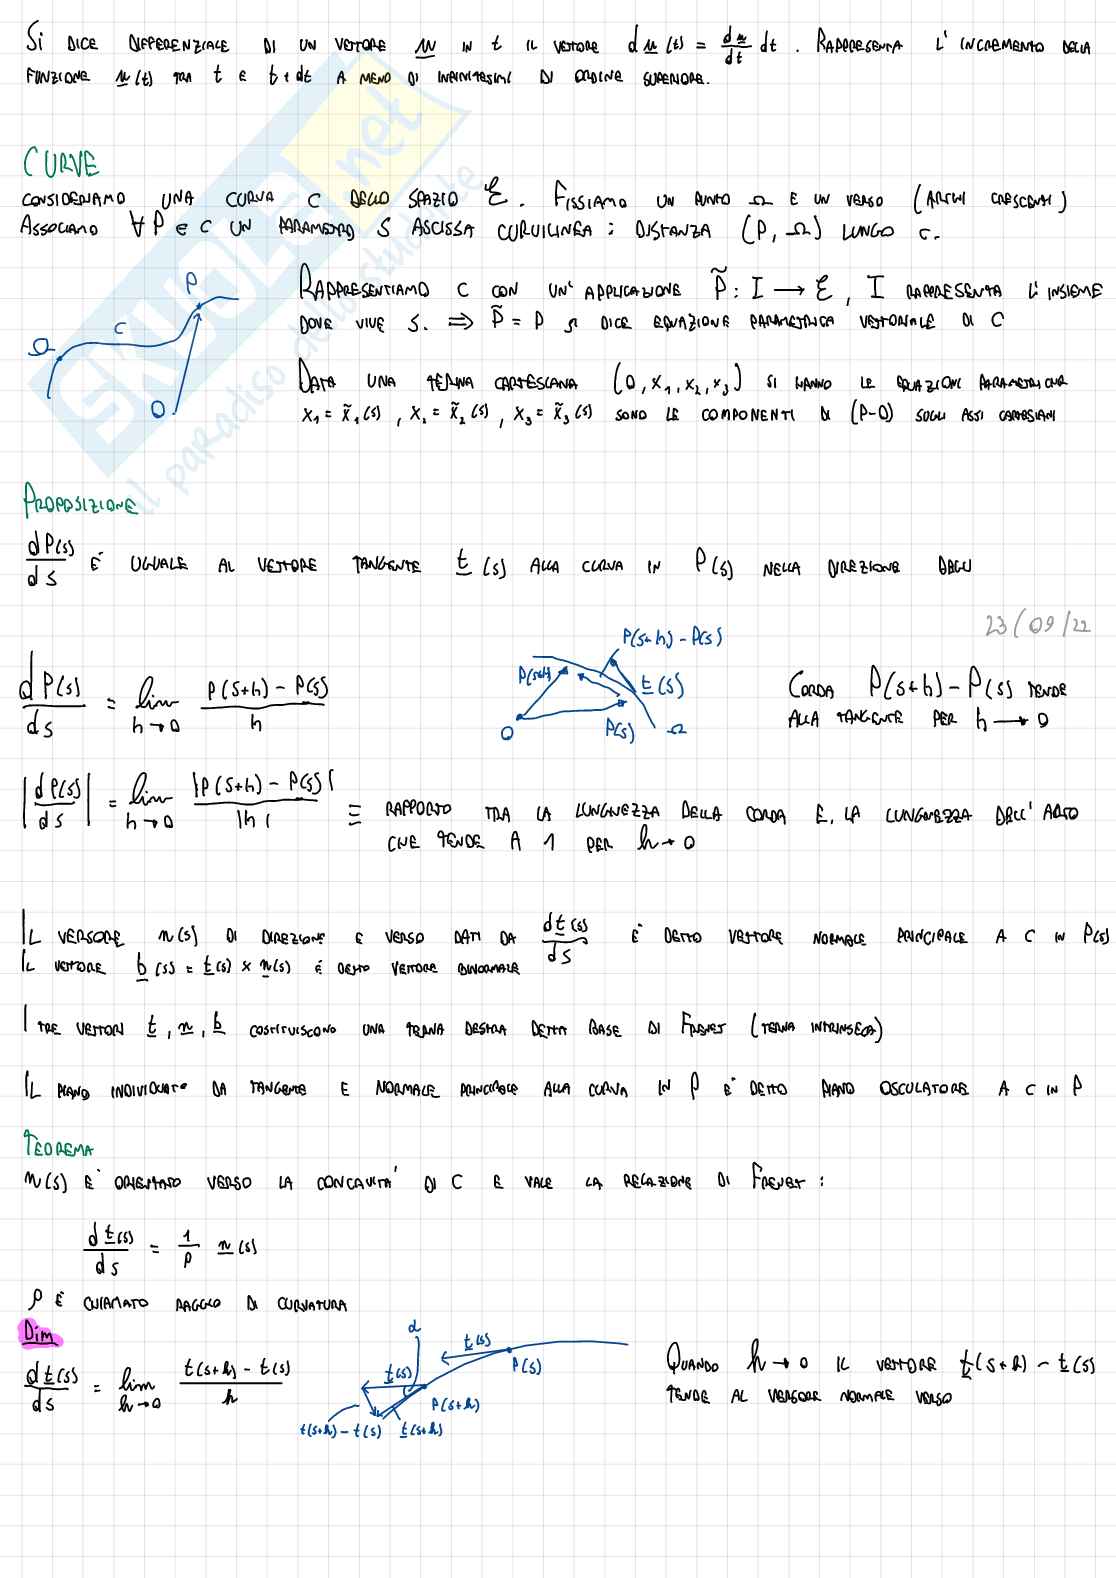 Si DICE DIFFERENZIALE DI UN VETTORE u IN t IL VETTORE du(t) = du/dt dt. RAPPRESENTA L'INCREMENTO DELLA
FUNZIONE u(t) TRA t E t+dt A MENO DI INFINITESIMI DI ORDINE SUPERIORE.
CURVE
CONSIDERIAMO UNA CURVA C DELLO SPAZIO ℰ. FISSIAMO UN PUNTO Ω E UN VERSO (ARCHI CRESCENTI)
ASSOCIAMO ∀P∈C UN PARAMETRO S ASCISSA CURVILINEA: DISTANZA (P, Ω) LUNGO C.
P
C
Ω
O
RAPPRESENTIAMO C CON UN'APPLICAZIONE P̃: I → ℰ, I RAPPRESENTA L'INSIEME
DOVE VIVE S. ⇒ P̃ = P SI DICE EQUAZIONE PARAMETRICA VETTORIALE DI C
DATA UNA TERNA CARTESIANA (O, x₁, x₂, x₃) SI HANNO LE EQUAZIONI PARAMETRICHE
x₁ = x̃₁(s), x₂ = x̃₂(s), x₃ = x̃₃(s) SONO LE COMPONENTI DI (P-O) SUGLI ASSI CARTESIANI
PROPOSIZIONE
dP(s)/ds È UGUALE AL VETTORE TANGENTE t(s) ALLA CURVA IN P(s) NELLA DIREZIONE DEGLI
23/09/22
dP(s)/ds = lim h→0 P(s+h) - P(s) / h
P(s+h) - P(s)
P(s+h)
t(s)
O
P(s)
Ω
CORDA P(s+h) - P(s) TENDE
ALLA TANGENTE PER h → 0
|dP(s)/ds| = lim h→0 |P(s+h) - P(s)| / |h| ≡ RAPPORTO TRA LA LUNGHEZZA DELLA CORDA E LA LUNGHEZZA DELL'ARCO
CHE TENDE A 1 PER h → 0
IL VERSORE n(s) DI DIREZIONE E VERSO DATI DA dt(s)/ds È DETTO VETTORE NORMALE PRINCIPALE A C IN P(s)
IL VETTORE b(s) = t(s) × n(s) È DETTO VETTORE BINORMALE
I TRE VETTORI t, n, b COSTITUISCONO UNA TERNA DESTRA DETTA BASE DI FRENET (TERNA INTRINSECA)
IL PIANO INDIVIDUATO DA TANGENTE E NORMALE PRINCIPALE ALLA CURVA IN P È DETTO PIANO OSCULATORE A C IN P
TEOREMA
n(s) È ORIENTATO VERSO LA CONCAVITÀ DI C E VALE LA RELAZIONE DI FRENET:
dt(s)/ds = 1/ρ n(s)
ρ È CHIAMATO RAGGIO DI CURVATURA
Dim
dt(s)/ds = lim h→0 t(s+h) - t(s) / h
α
t(s)
P(s)
t(s)
P(s+h)
t(s+h) - t(s)
t(s+h)
QUANDO h → 0 IL VETTORE t(s+h) - t(s)
TENDE AL VERSORE NORMALE VERSO
SKUOLA.net
il paradiso dello studente